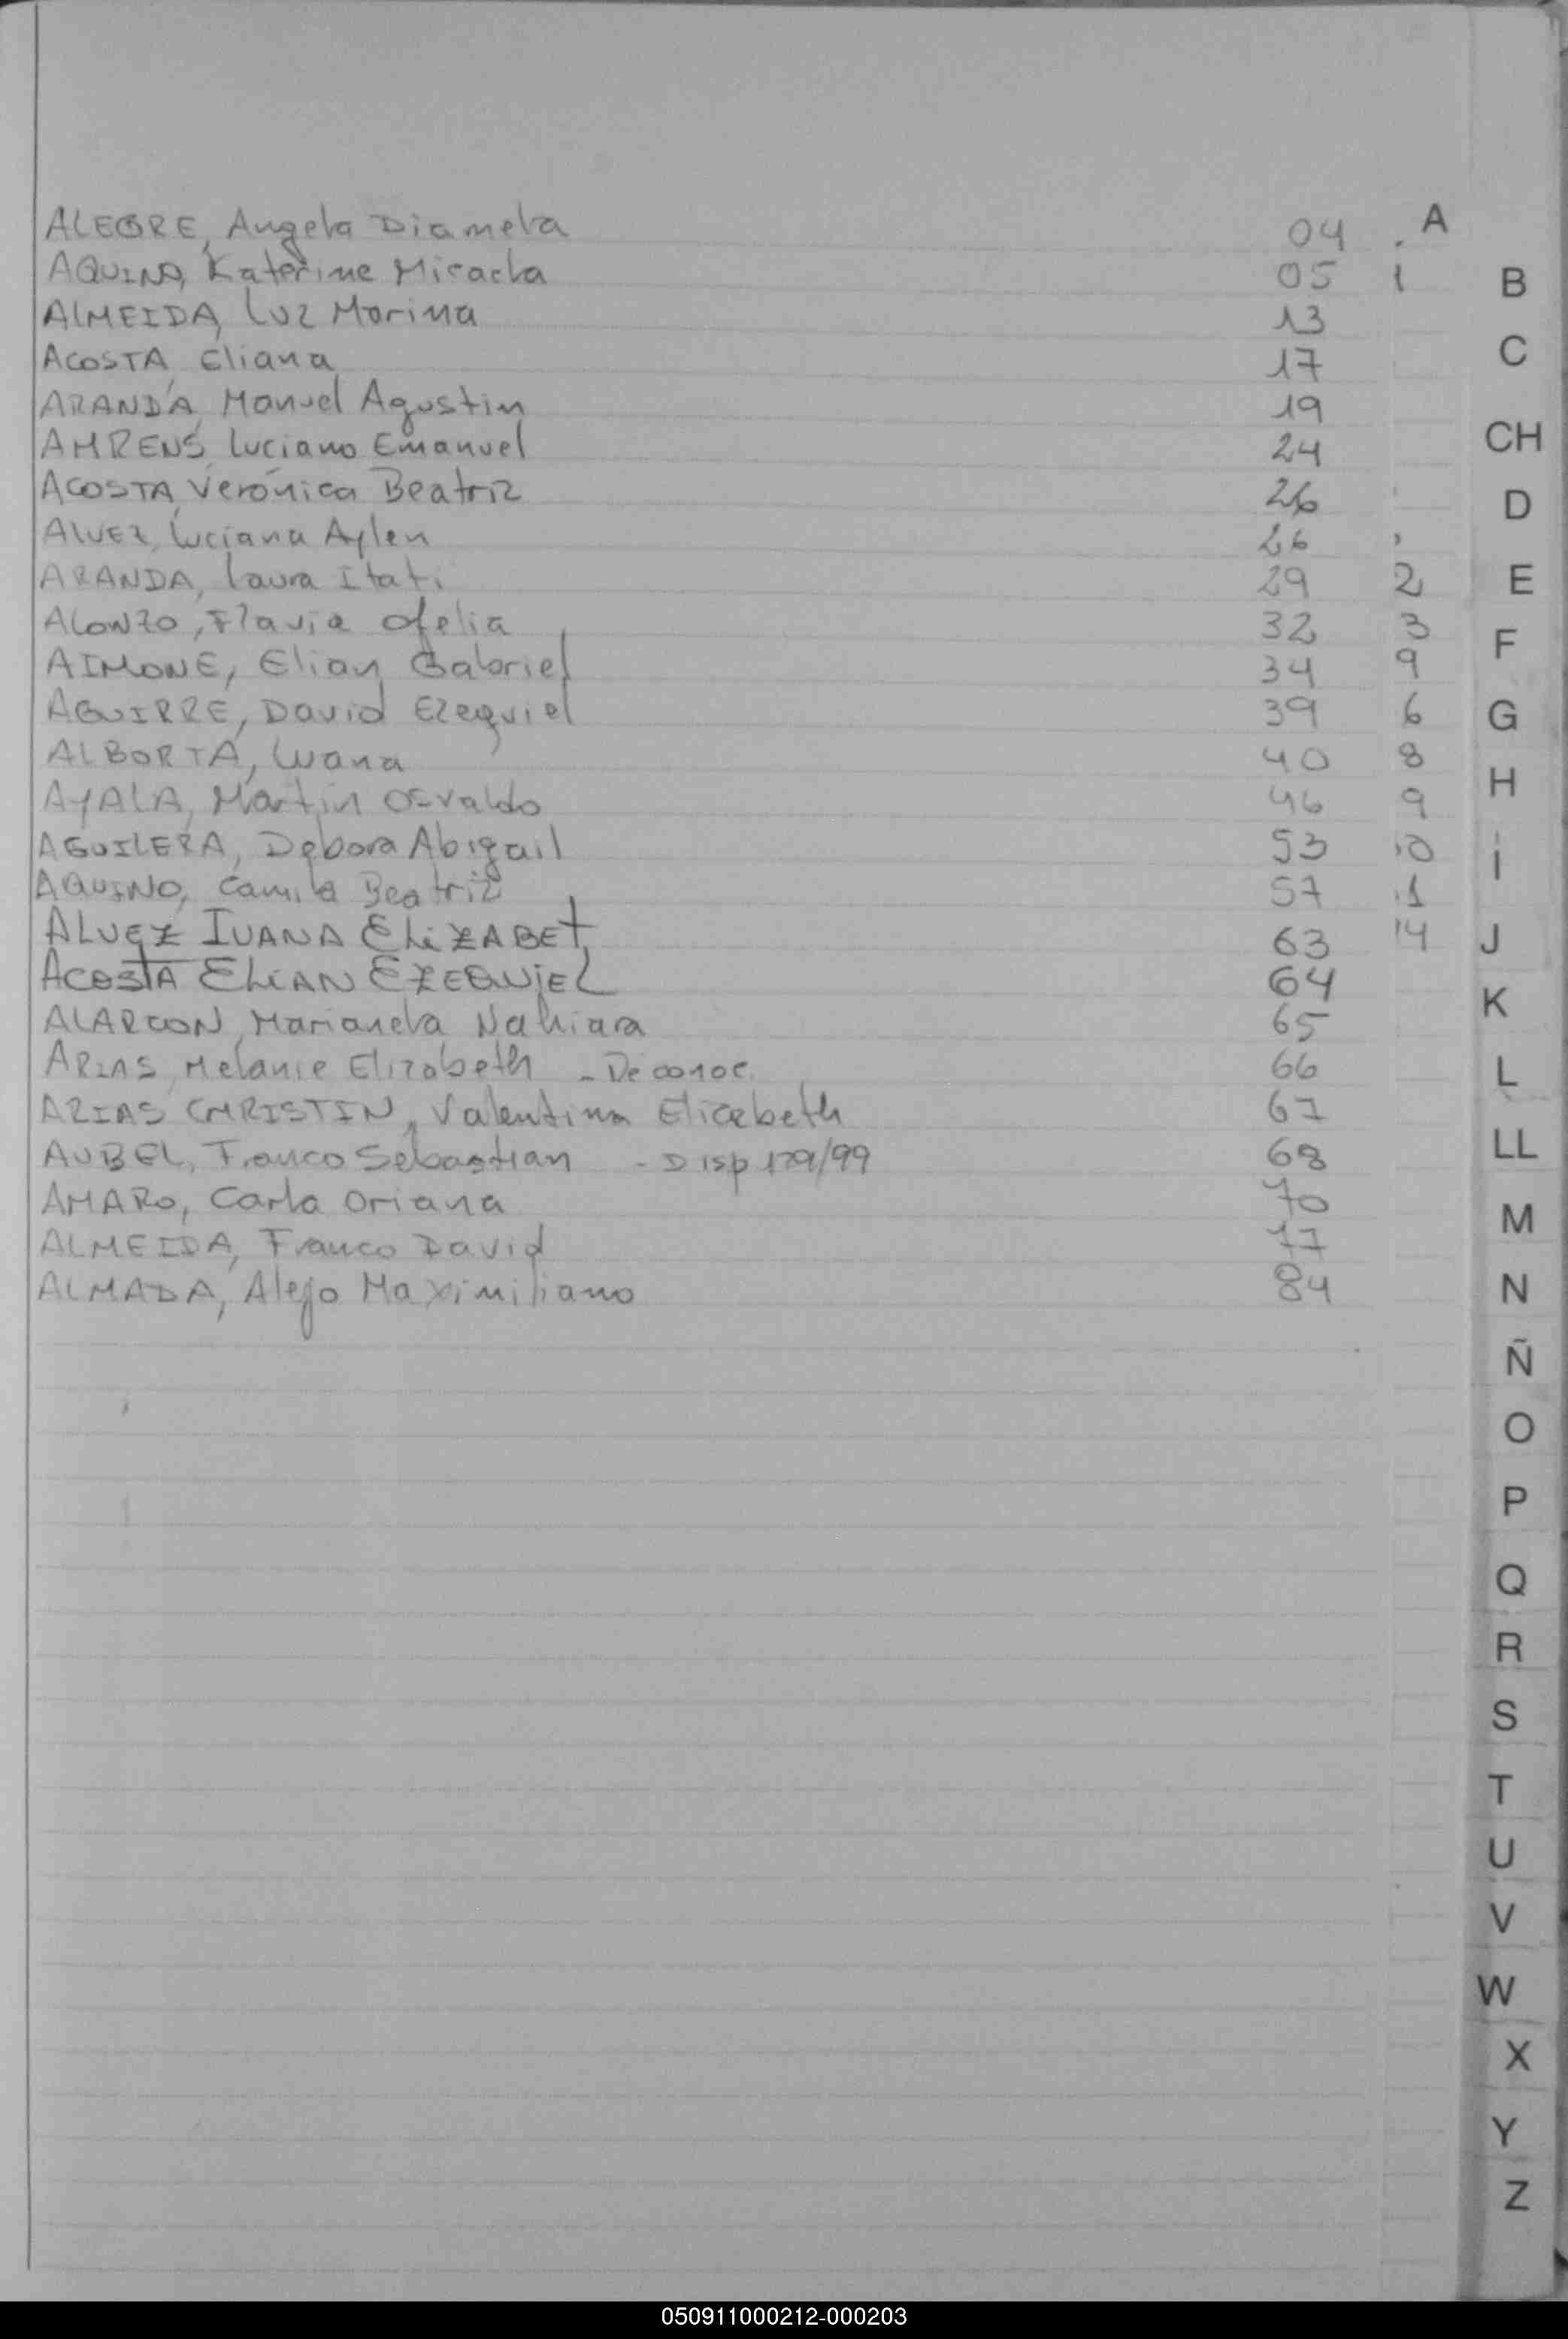 A
ALEGRE, Angela Diamela 04
AQUINO, Katerine Micaela 05 1
ALMEIDA, Luz Marina 13
ACOSTA, Eliana 17
ARANDA, Manuel Agustin 19
AHRENS, Luciano Emanuel 24
ACOSTA, Verónica Beatriz 26
ALVEZ, Luciana Aylen 26
ARANDA, Laura Itati 29 2
ALONZO, Flavia Ofelia 32 3
AIMONE, Elian Gabriel 34 9
AGUIRRE, David Ezequiel 39 6
ALBORTA, Luana 40 8
AYALA, Martin Osvaldo 46 9
AGUILERA, Debora Abigail 53 10
AQUINO, Camila Beatriz 57 11
ALVEZ IVANA ELIZABET 63 14
ACOSTA ELIAN EZEQUIEL 64
ALARCON, Marianela Nahiara 65
ARIAS, Melanie Elizabeth 66
ARIAS CHRISTIN, Valentina Elizabeth 67
AUBEL, Franco Sebastian - Disp 179/99 68
AMARO, Carla Oriana 70
ALMEIDA, Franco David 77
ALMADA, Alejo Maximiliano 84
B
C
CH
D
E
F
G
H
I
J
K
L
LL
M
N
Ñ
O
P
Q
R
S
T
U
V
W
X
Y
Z
050911000212-000203